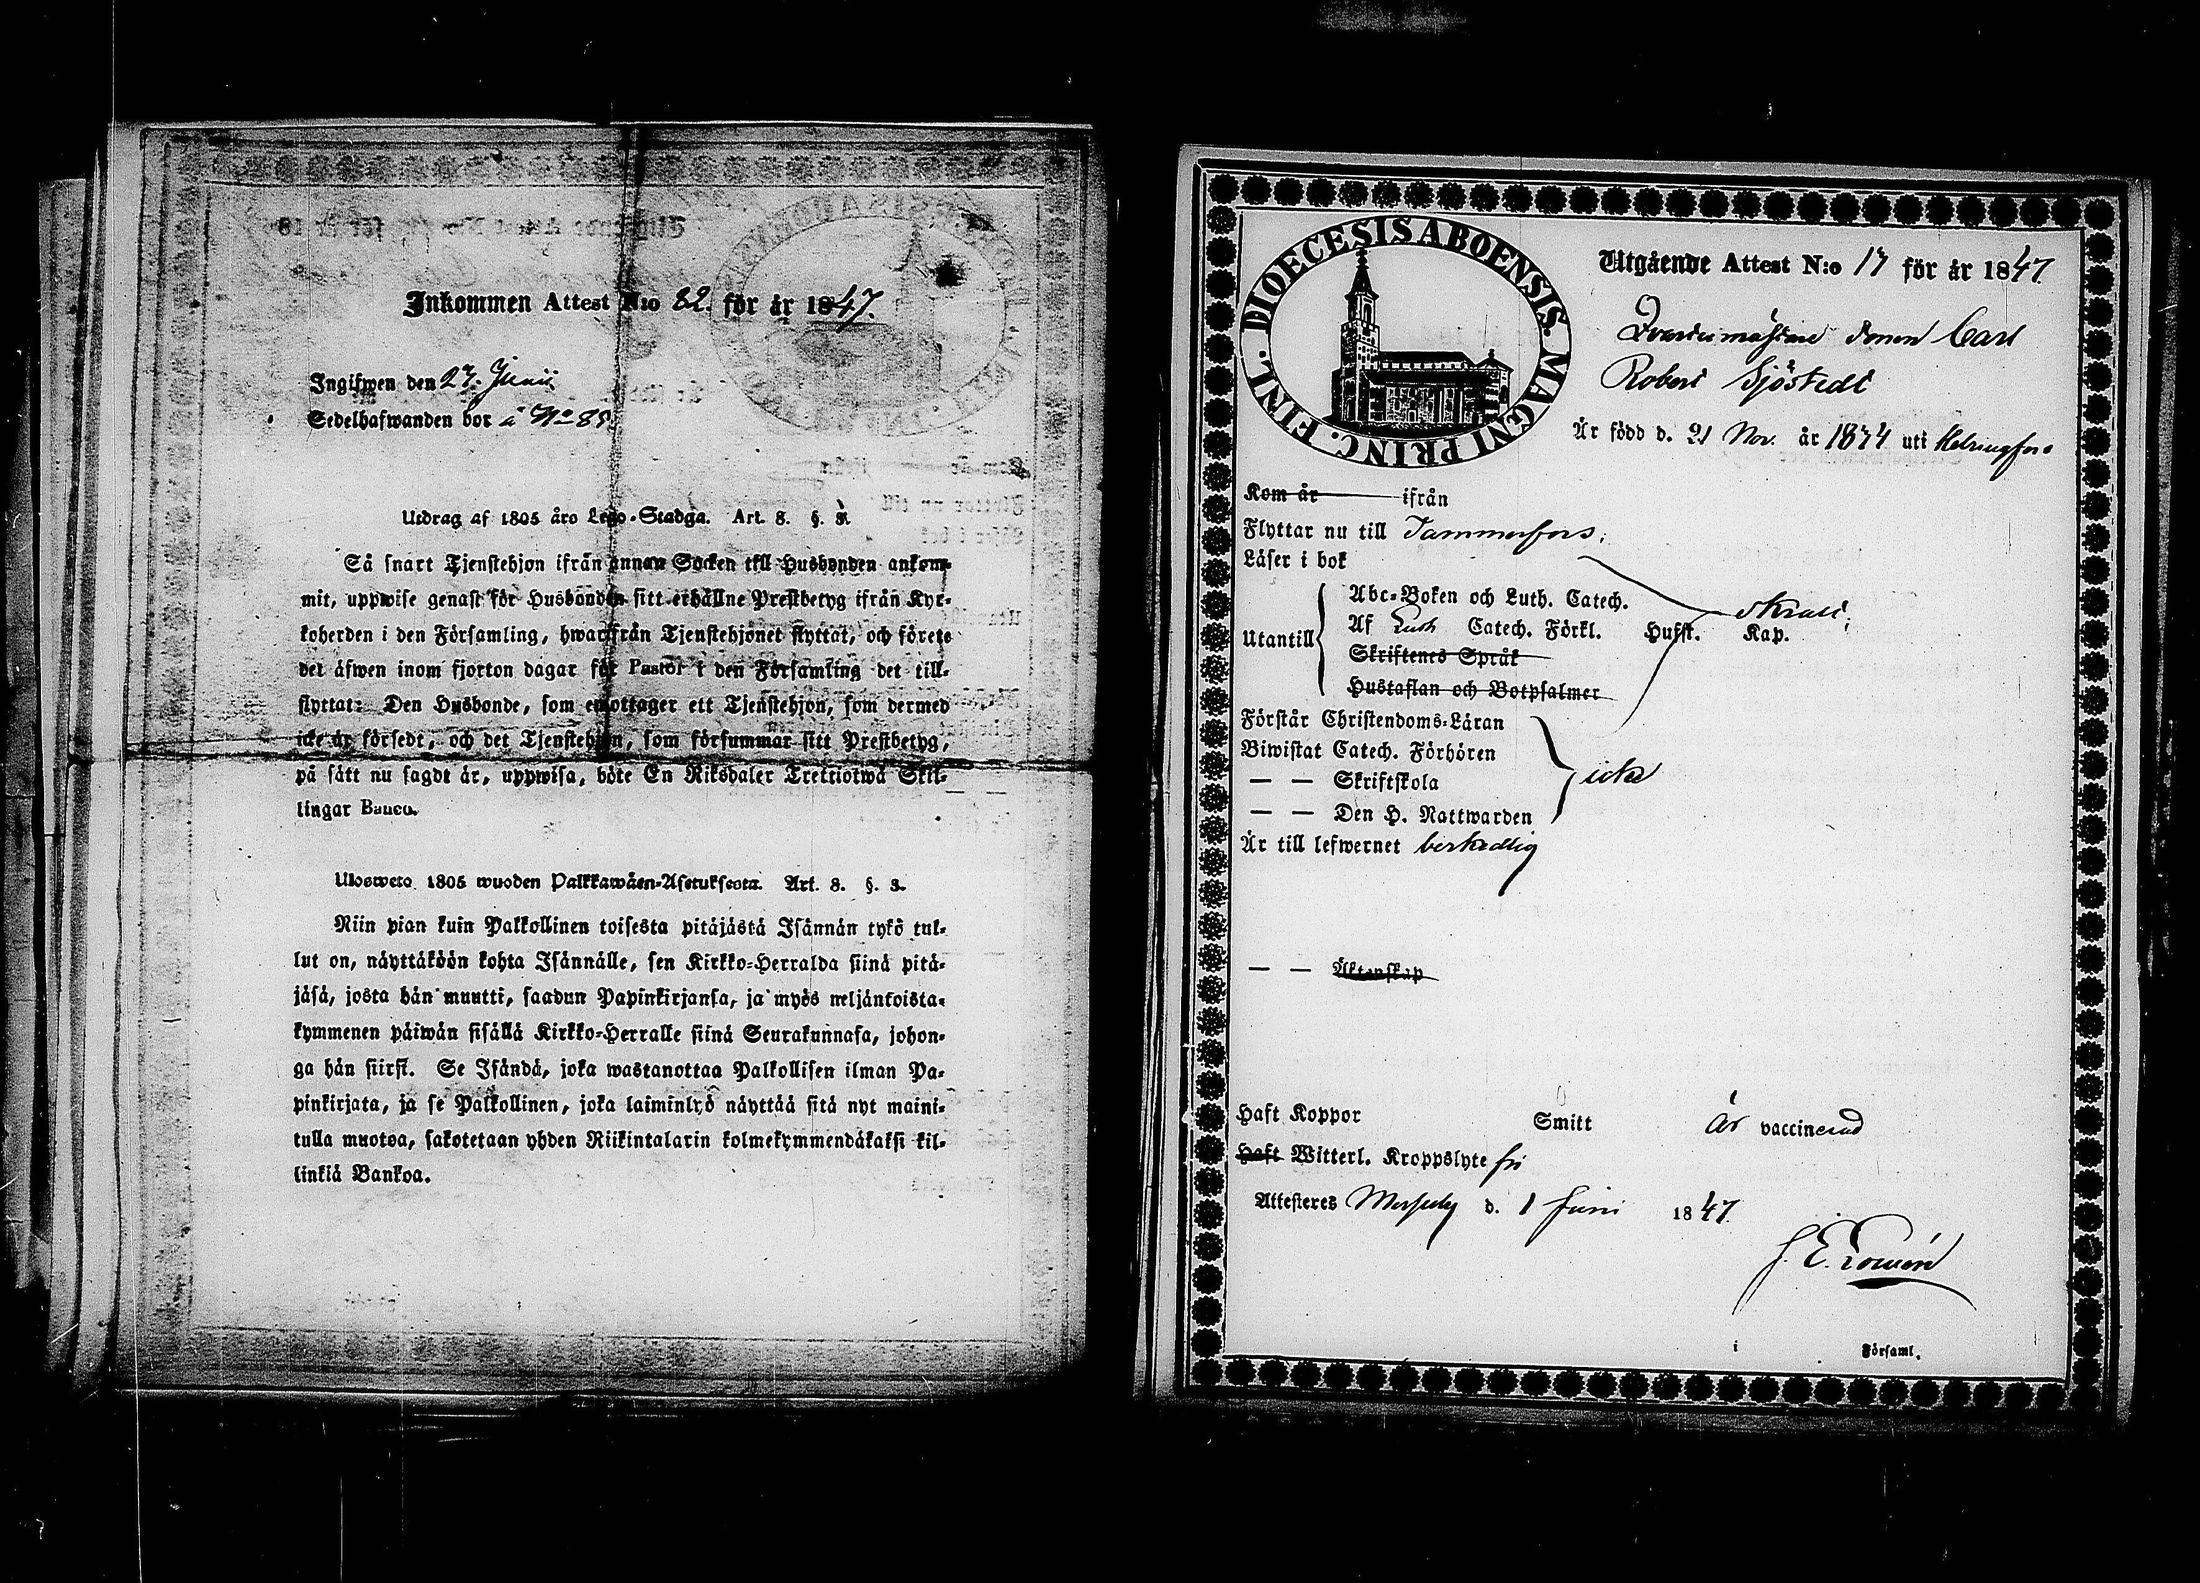 Inkommen Attest N:o 82. för år 1847.
Ingifwen den 27. Junii
Sedelhafwanden bor å No 85
Utdrag af 1805 års Lego-Stadga. Art. 8. §. 3.
Så snart Tjenstehjon ifrån annan Socken till Husbonden ankom-
mit, uppwise genast för Husbonden sitt erhållne Prestbetyg ifrån Kyr-
koherden i den Församling, hwarifrån Tjenstehjonet flyttat, och förete
det äfwen inom fjorton dagar för Pastor i den Församling det till-
flyttat: Den Husbonde, som emottager ett Tjenstehjon, som dermed
icke är försedt, och det Tjenstehjon, som försummar sitt Prestbetyg,
på sätt nu sagdt är, uppwisa, böte En Riksdaler Trettiotwå Skil-
lingar Banco.
Uloswето 1805 wuoden Palkkawäen-Asetuksesta. Art. 8. §. 3.
Niin pian kuin Palkollinen toisesta pitäjästä Isännän tykö tul-
lut on, näyttäköön kohta Isännälle, sen Kirkko-Herralda siinä pitä-
jäsä, josta hän muutti, saadun Papinkirjansa, ja myös neljäntoista-
kymmenen päiwän sisällä Kirkko-Herralle siinä Seurakunnasa, johon-
ga hän siirsi. Se Isändä, joka wastanottaa Palkollisen ilman Pa-
pinkirjata, ja se Palkollinen, joka laiminlyö näyttää sitä nyt maini-
tulla muotoa, sakotetaan yhden Riikintalarin kolmekymmendäkaksi kil-
linkiä Bankoa.
DIOECESIS ABOENSIS. MAGNI PRINC. FINL.
Utgående Attest N:o 17 för år 1847.
Carl
Robert Sjöstedt
Är född d. 21 Nov. år 1834 uti Helsingfors
Kom år ifrån
Flyttar nu till Tammerfors;
Läser i bok
Utantill
Abc-Boken och Luth. Catech.
Af Luth Catech. Förkl. Hufst. Kap.
Skriftenes Språk
Hustaflan och Botpsalmer
Förstår Christendoms-Läran
Biwistat Catech. Förhören
— — Skriftskola
— — Den H. Nattwarden
icke
Är till lefwernet beskedlig
— — Äktenskap
Haft Koppor Smitt är vaccinerad
Haft Witterl. Kroppslyte fri
Attesteres d. 1 Juni 1847.
i Församl.